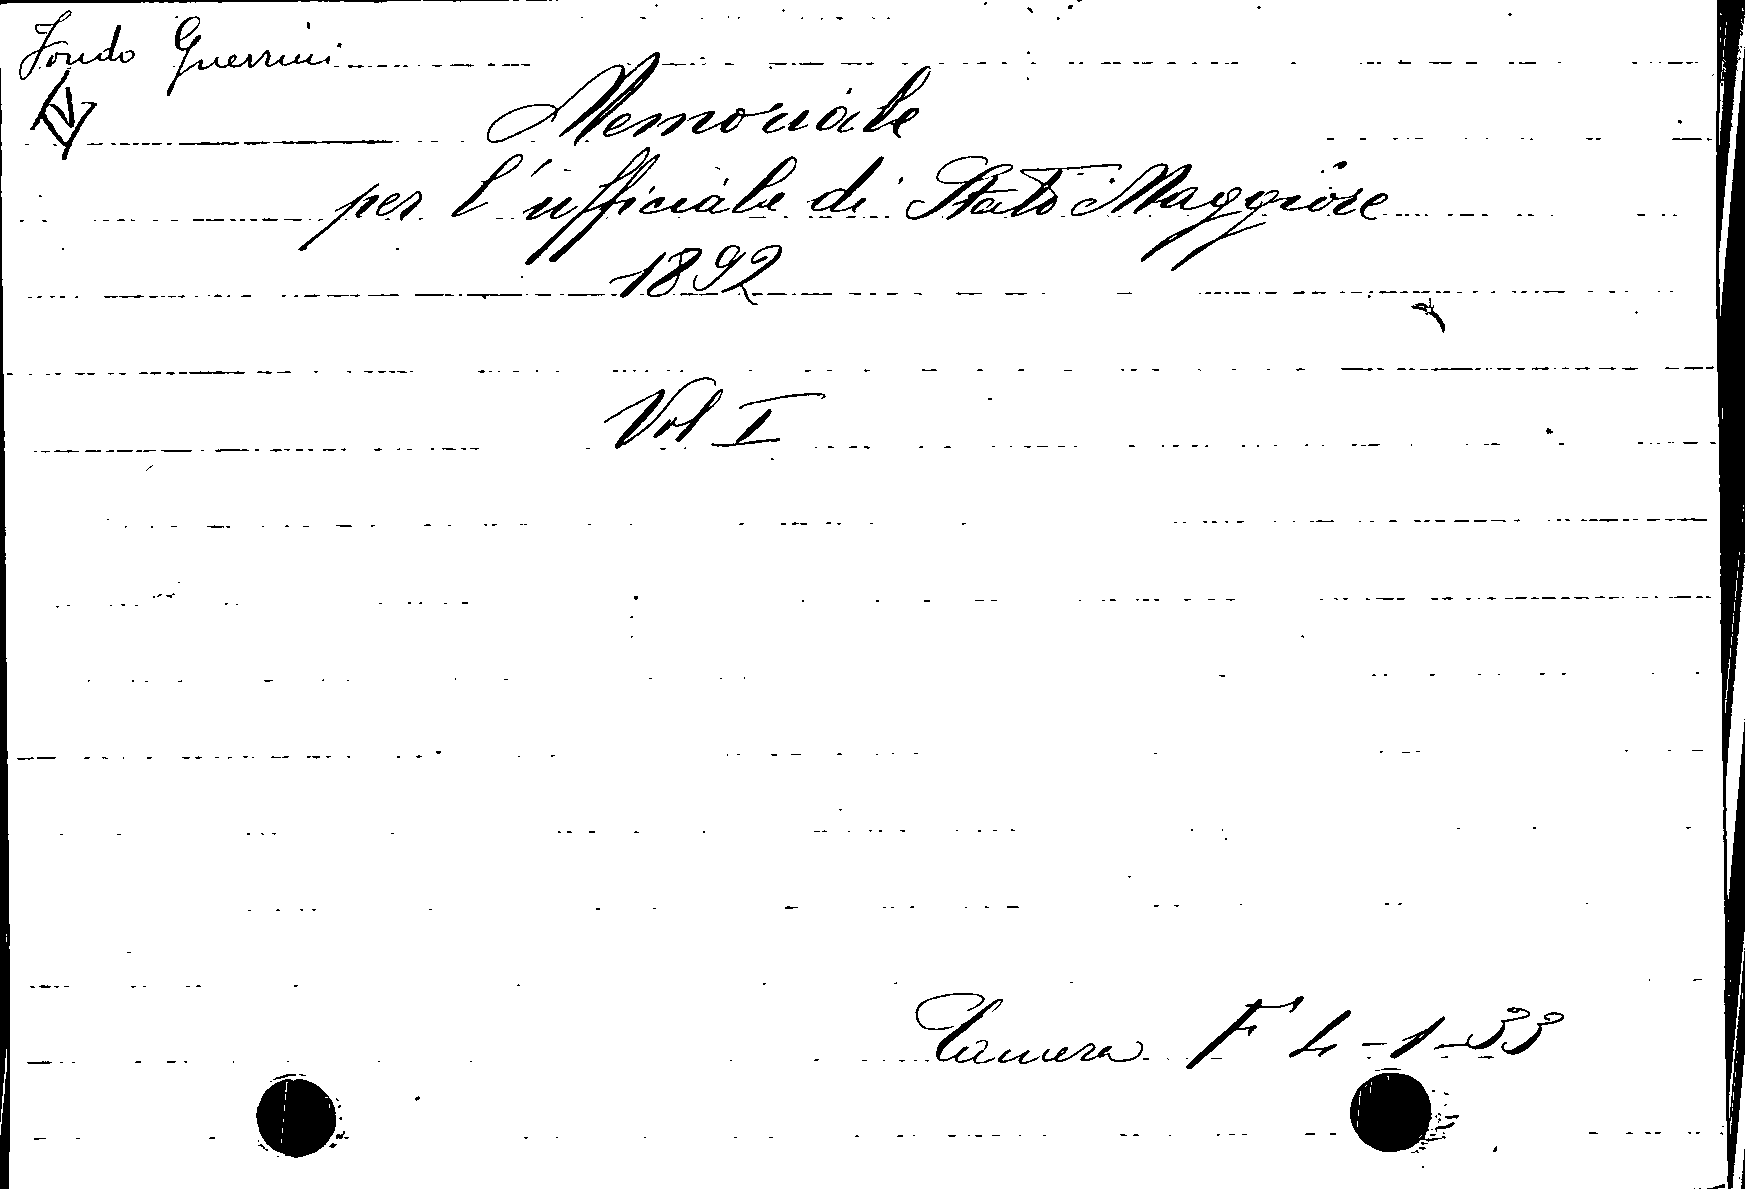 Fondo Guerrini
IV
Memoriale
per l'ufficiale di Stato Maggiore
1892
Vol I
Camera F 4-1-33